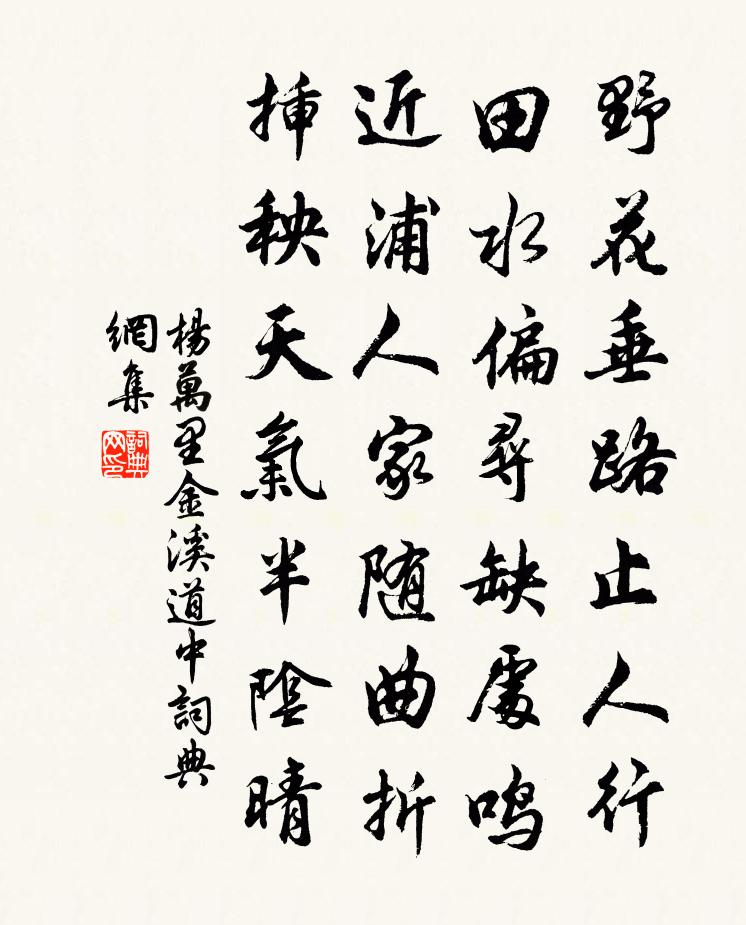 野花垂路止人行
田水偏尋缺處鳴
近浦人家随曲折
插秧天氣半陰晴
楊萬里金溪道中詞典
網集
詞典
网印